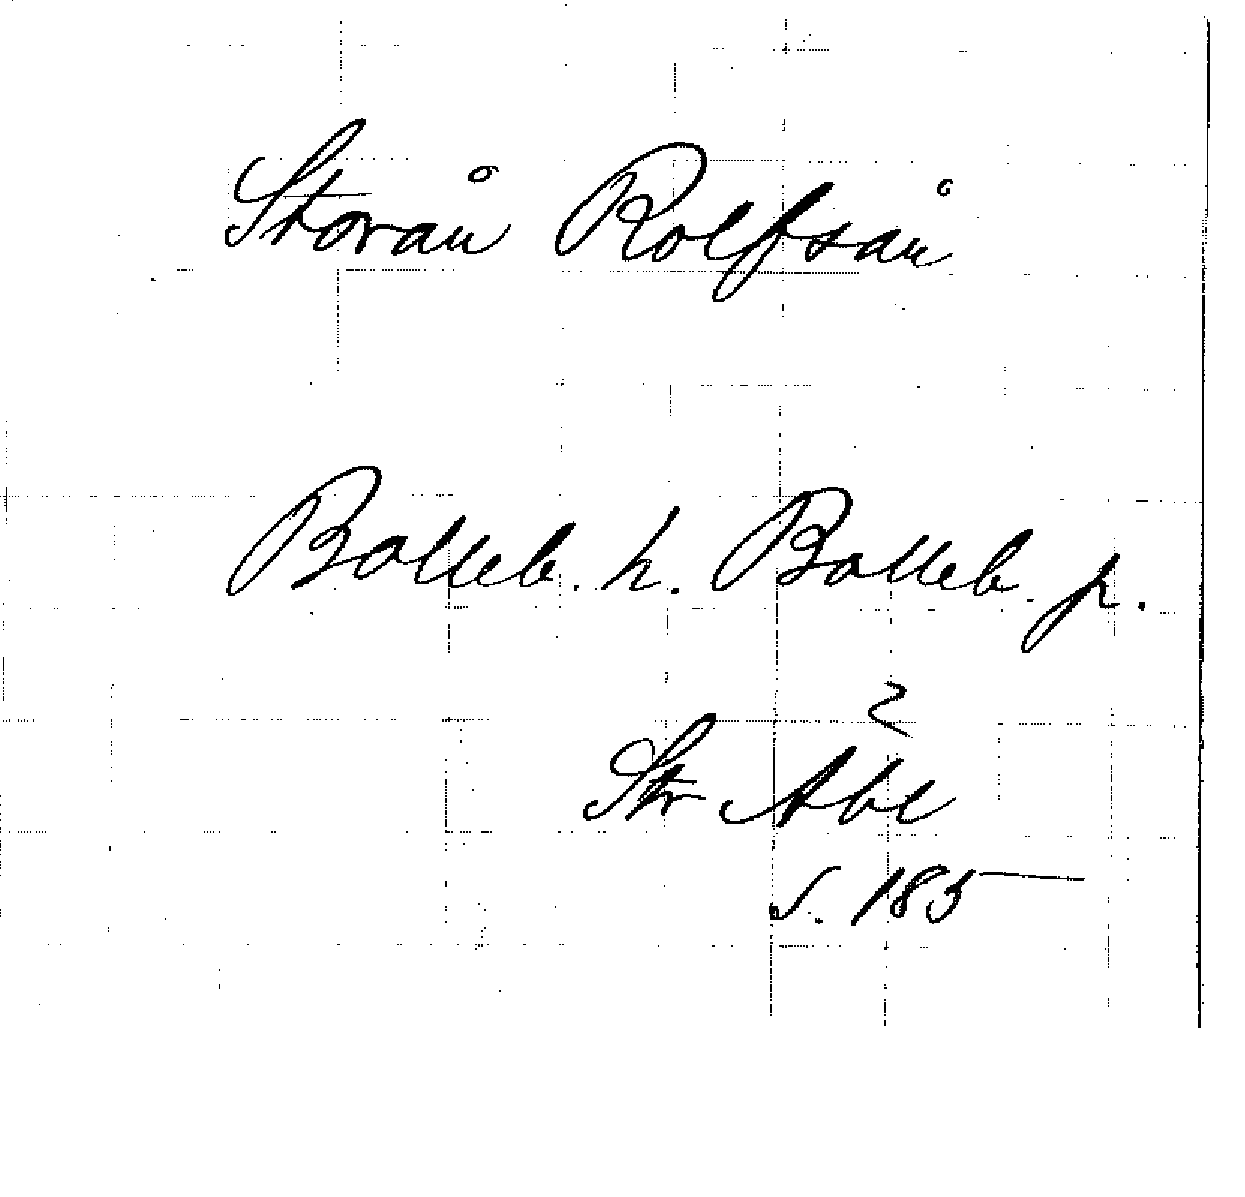 Storån Rolfsån
Bolleb. h. Bolleb. p.
2
Str Abl
S. 185